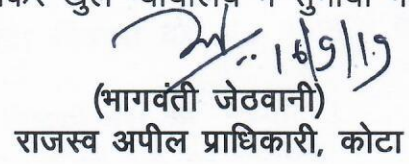 16/9/19
(भागवंती जेठवानी)
राजस्व अपील प्राधिकारी, कोटा